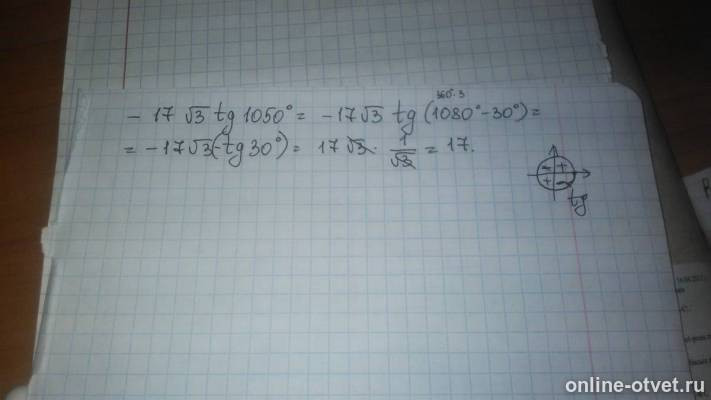 360°·3
- 17 √3 tg 1050° = -17√3 tg (1080° - 30°) =
= -17√3(-tg 30°) = 17√3 · 1/√3 = 17.
- +
+ -
tg
online-otvet.ru